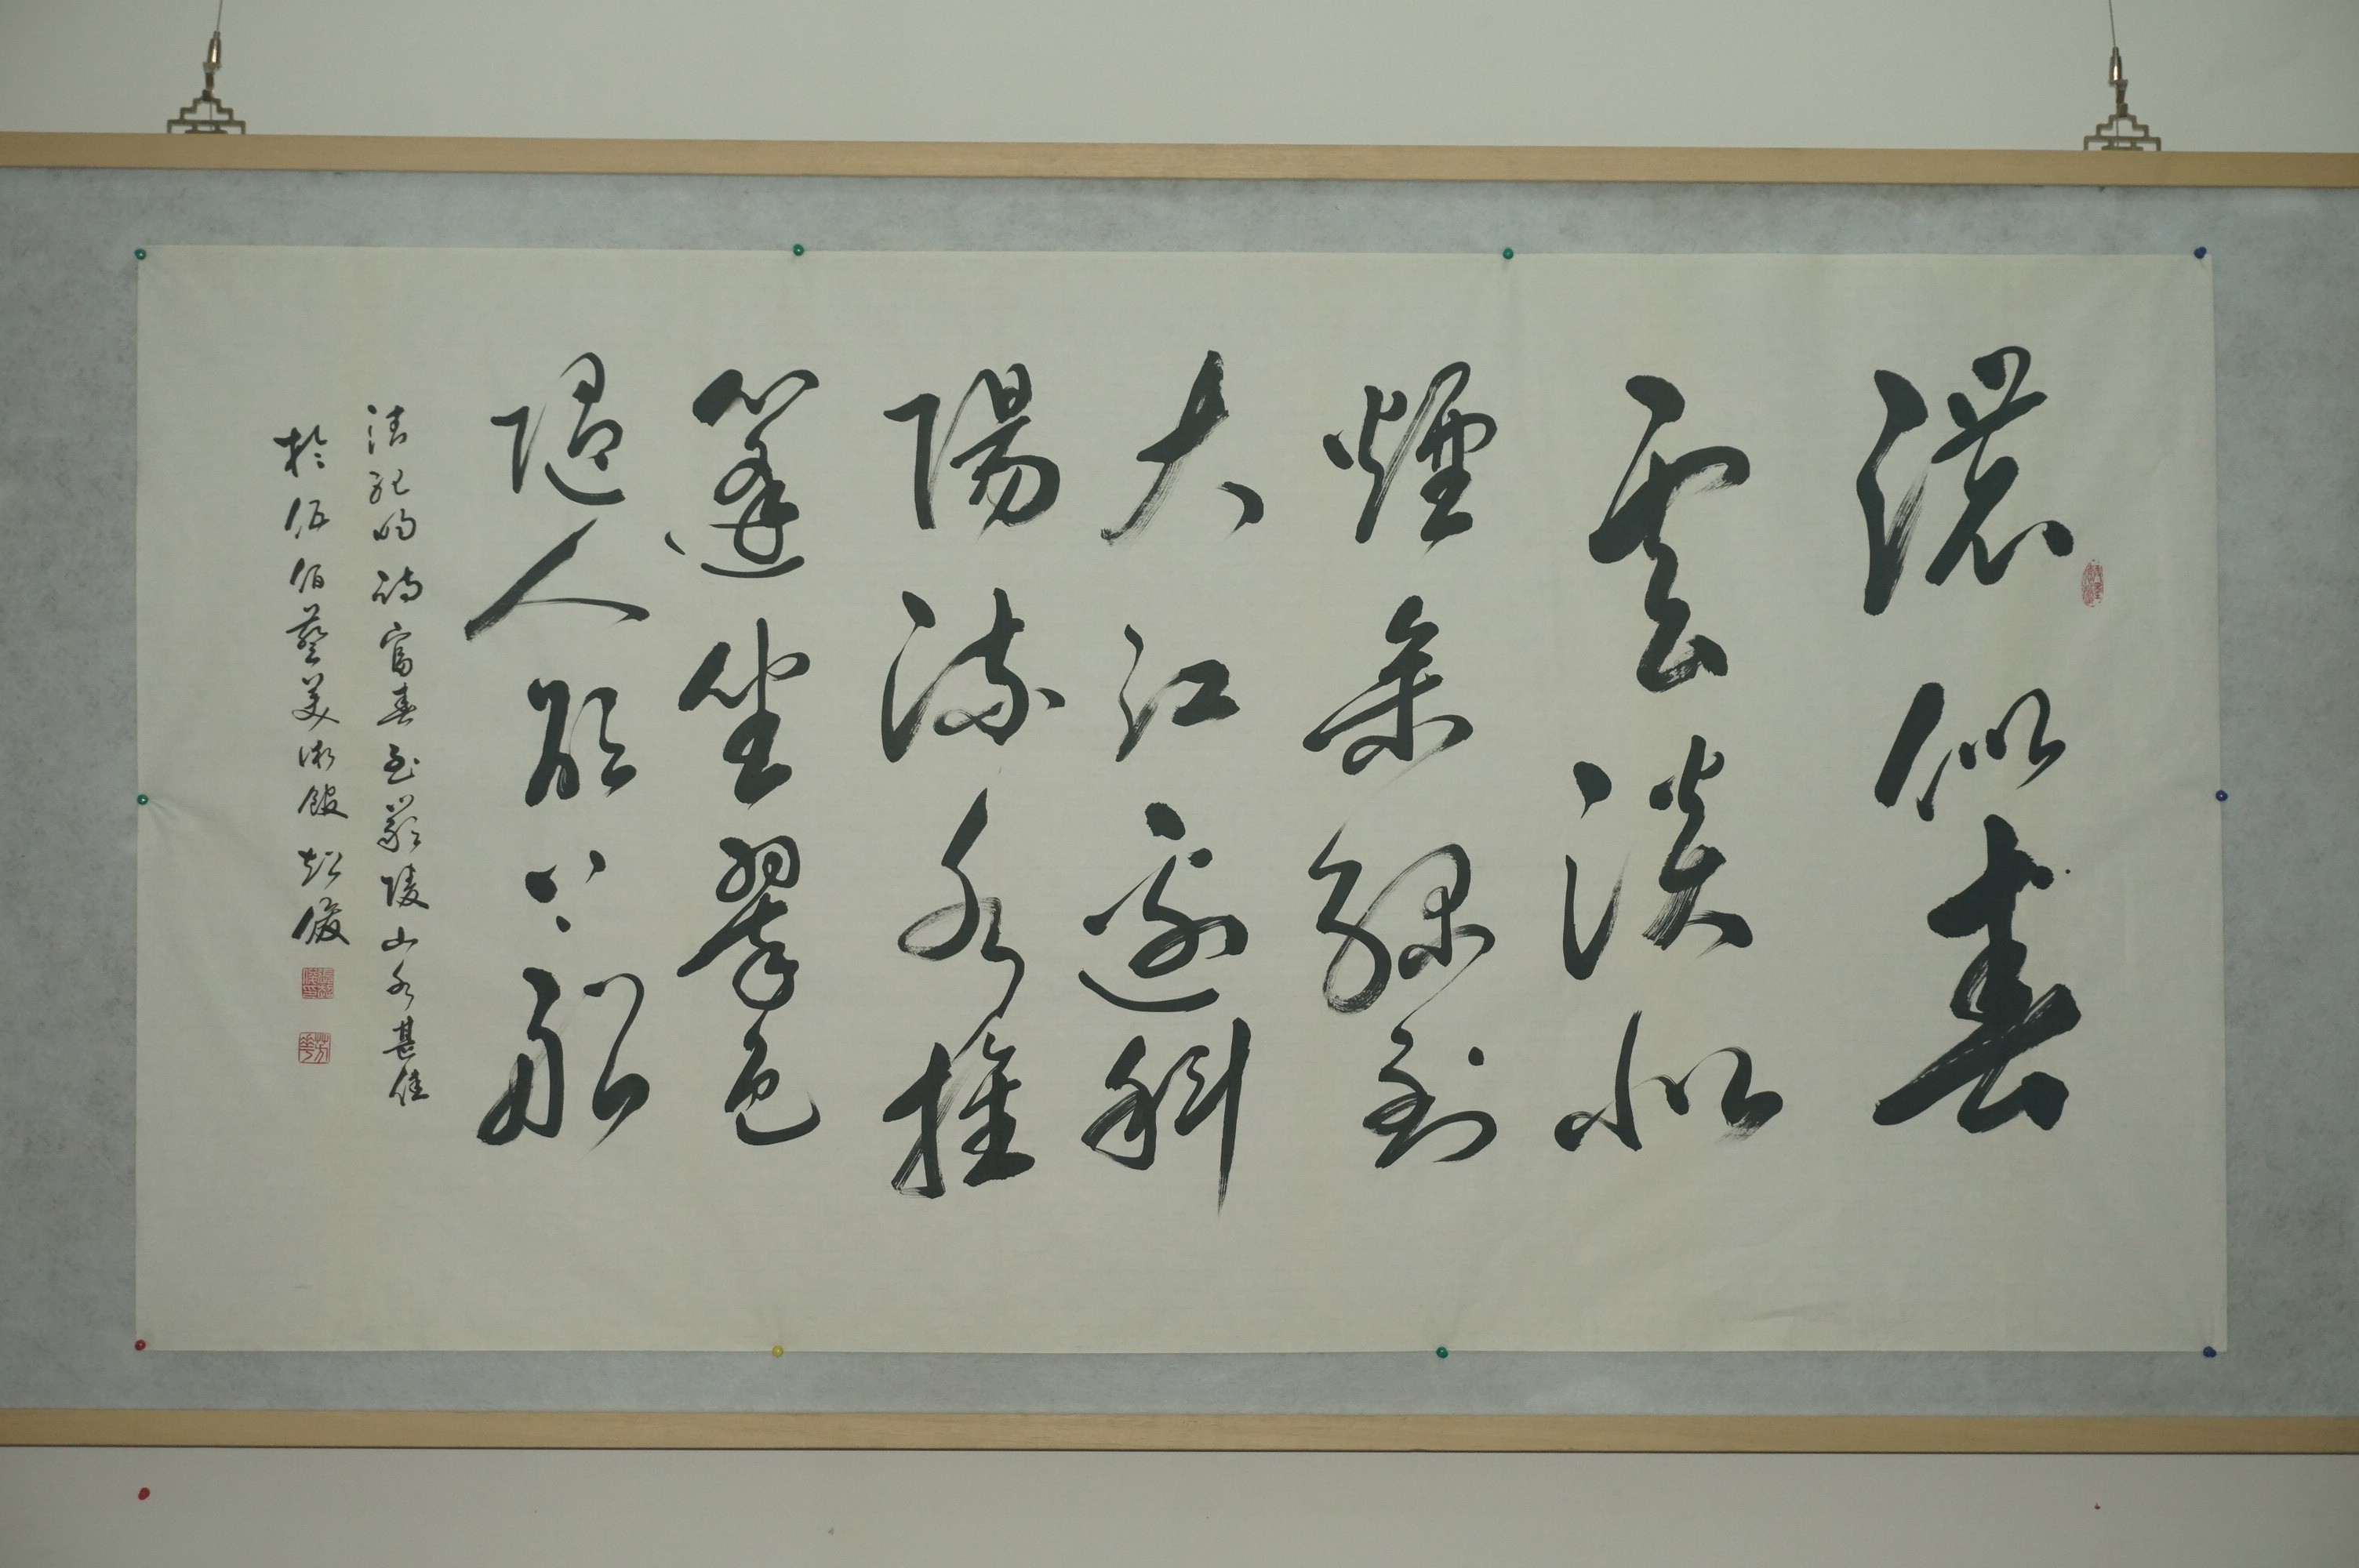 濃似春
雲淡似
煙参綠到
大江邊斜
陽流水推
篷坐翠色
隨人欲上船
清紀昀詩富春至嚴陵山水甚佳
於伍佰藝美術館超俊